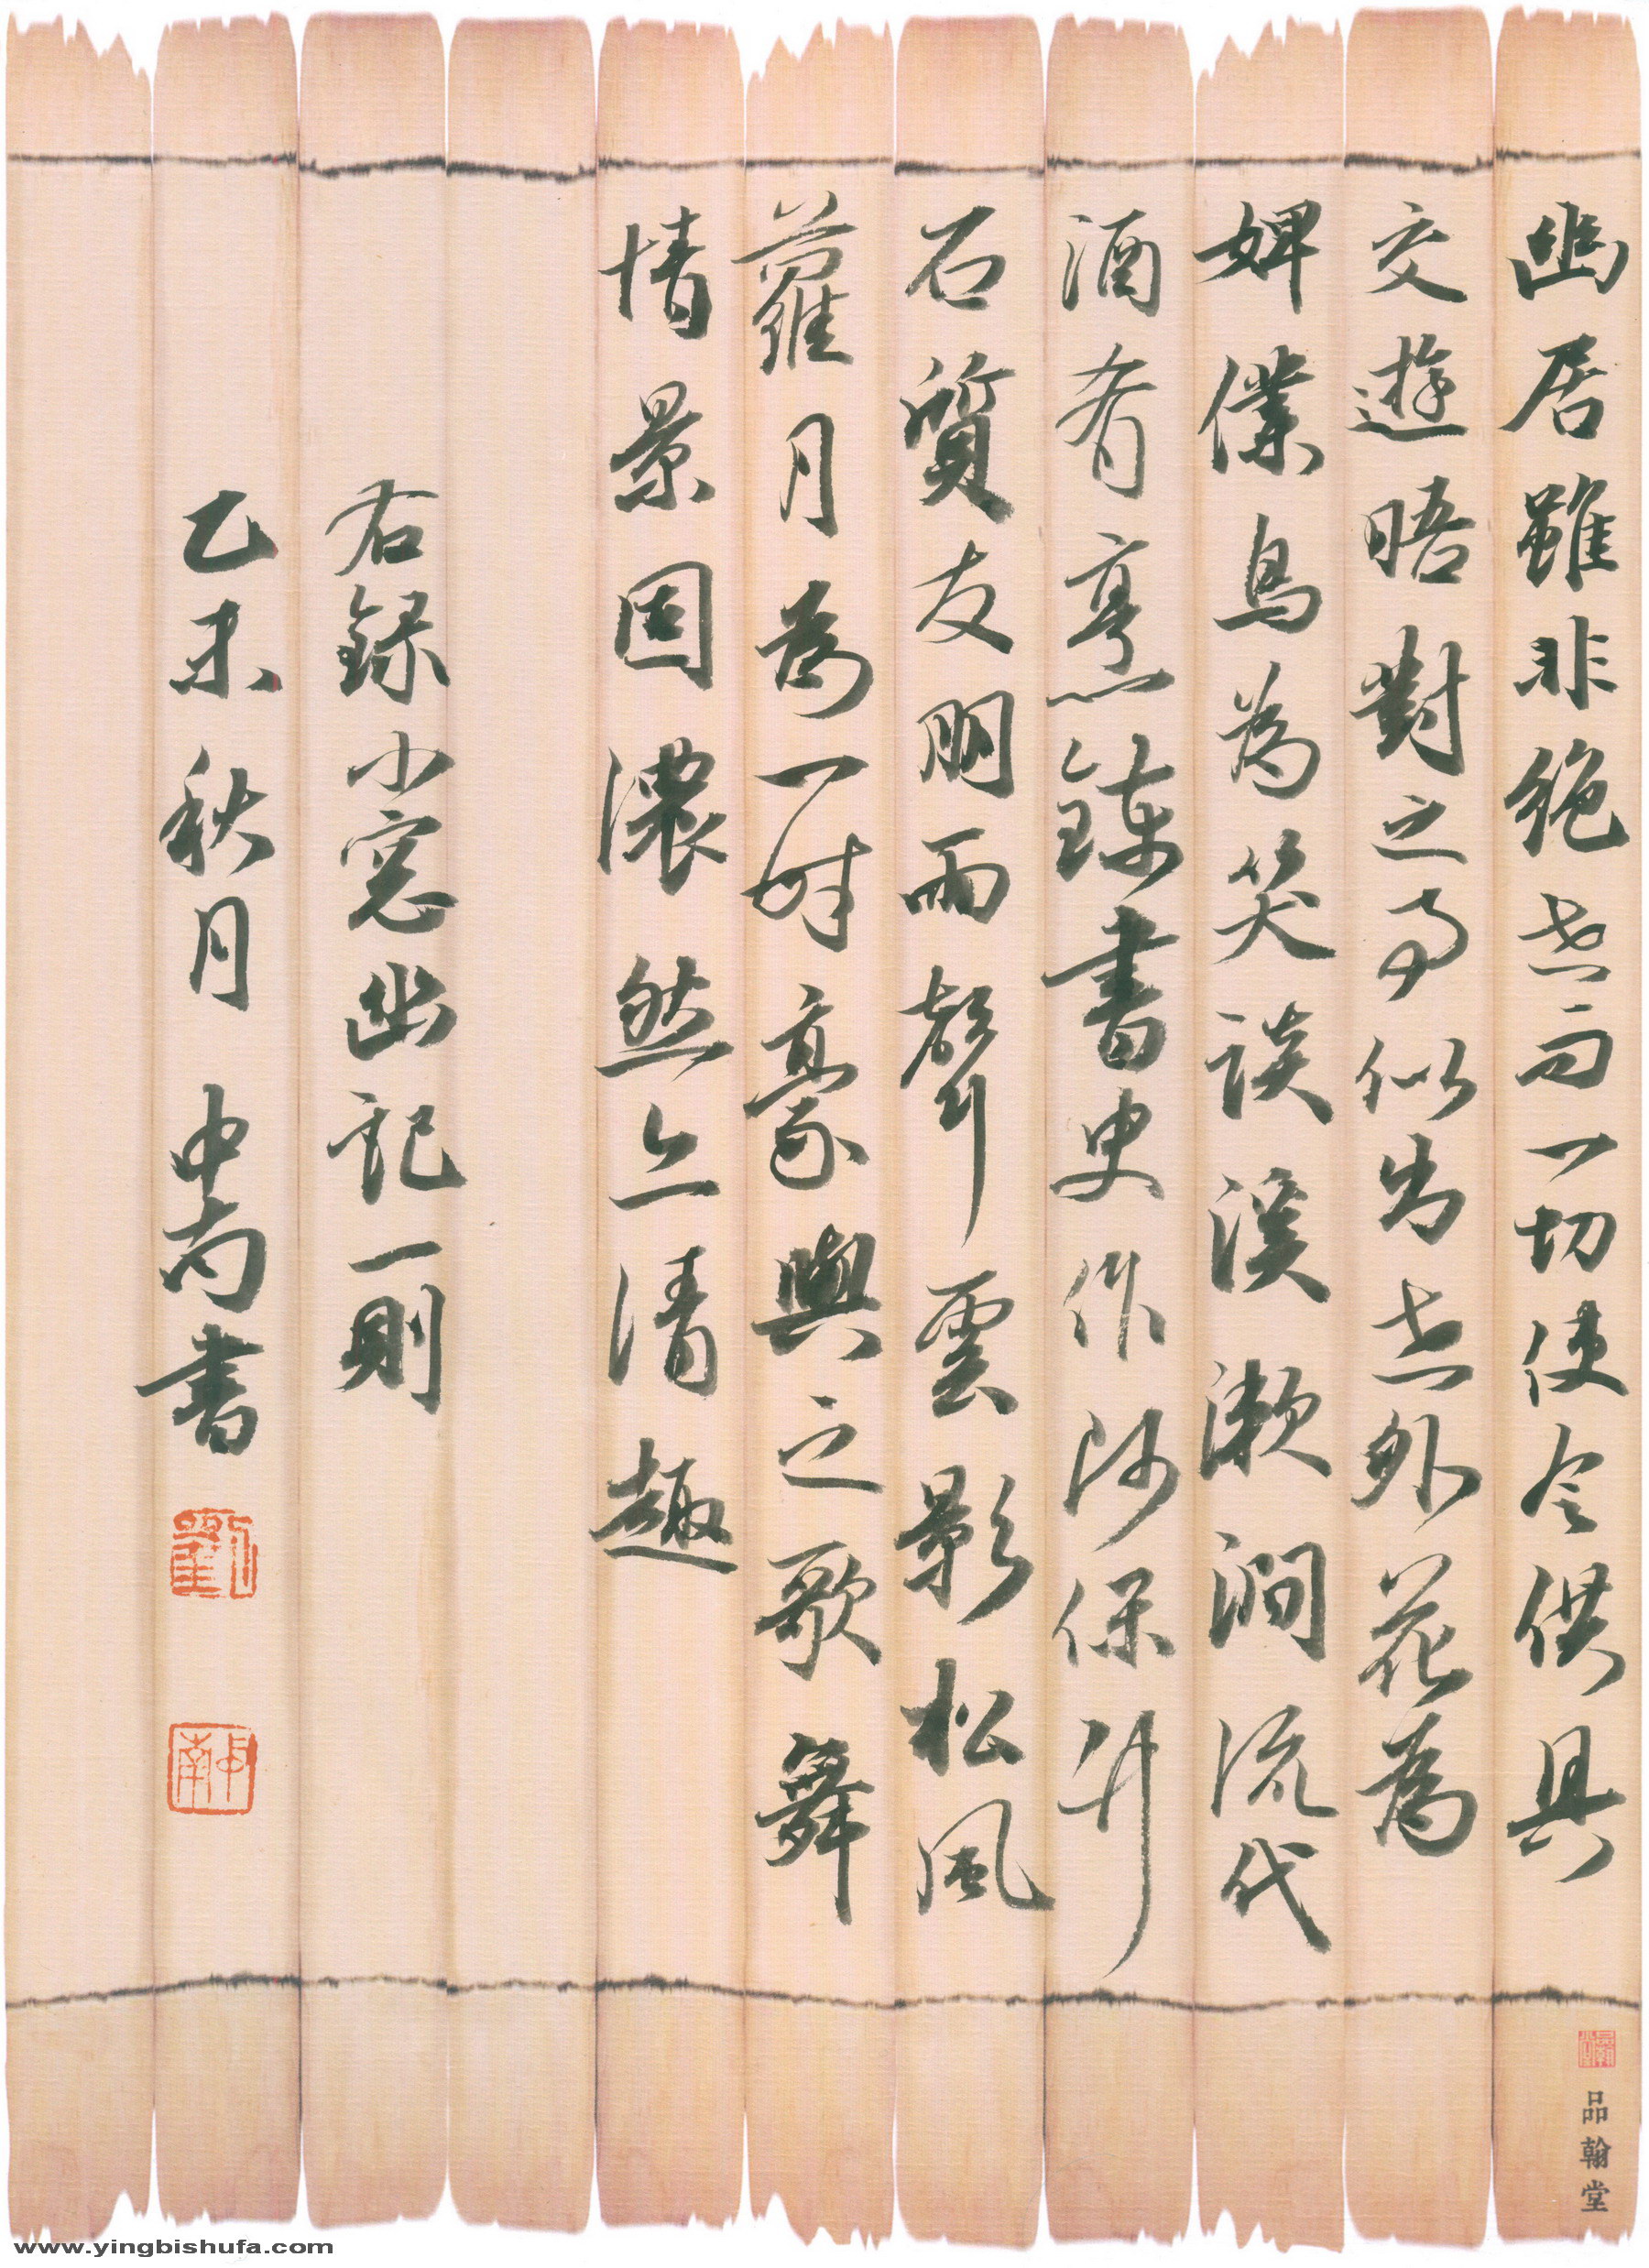 幽居雖非絕世而一切使令供具
交遊晤對之事似出世外花為
婢僕鳥為笑談溪漱澗流代
酒肴烹鍊書史作師保竹
石質友朋雨聲雲影松風
蘿月為一時豪興之歌舞
情景固濃然亦清趣
右録小窓幽記一則
乙未秋月中南書
劉
中南
品翰堂
www.yingbishufa.com